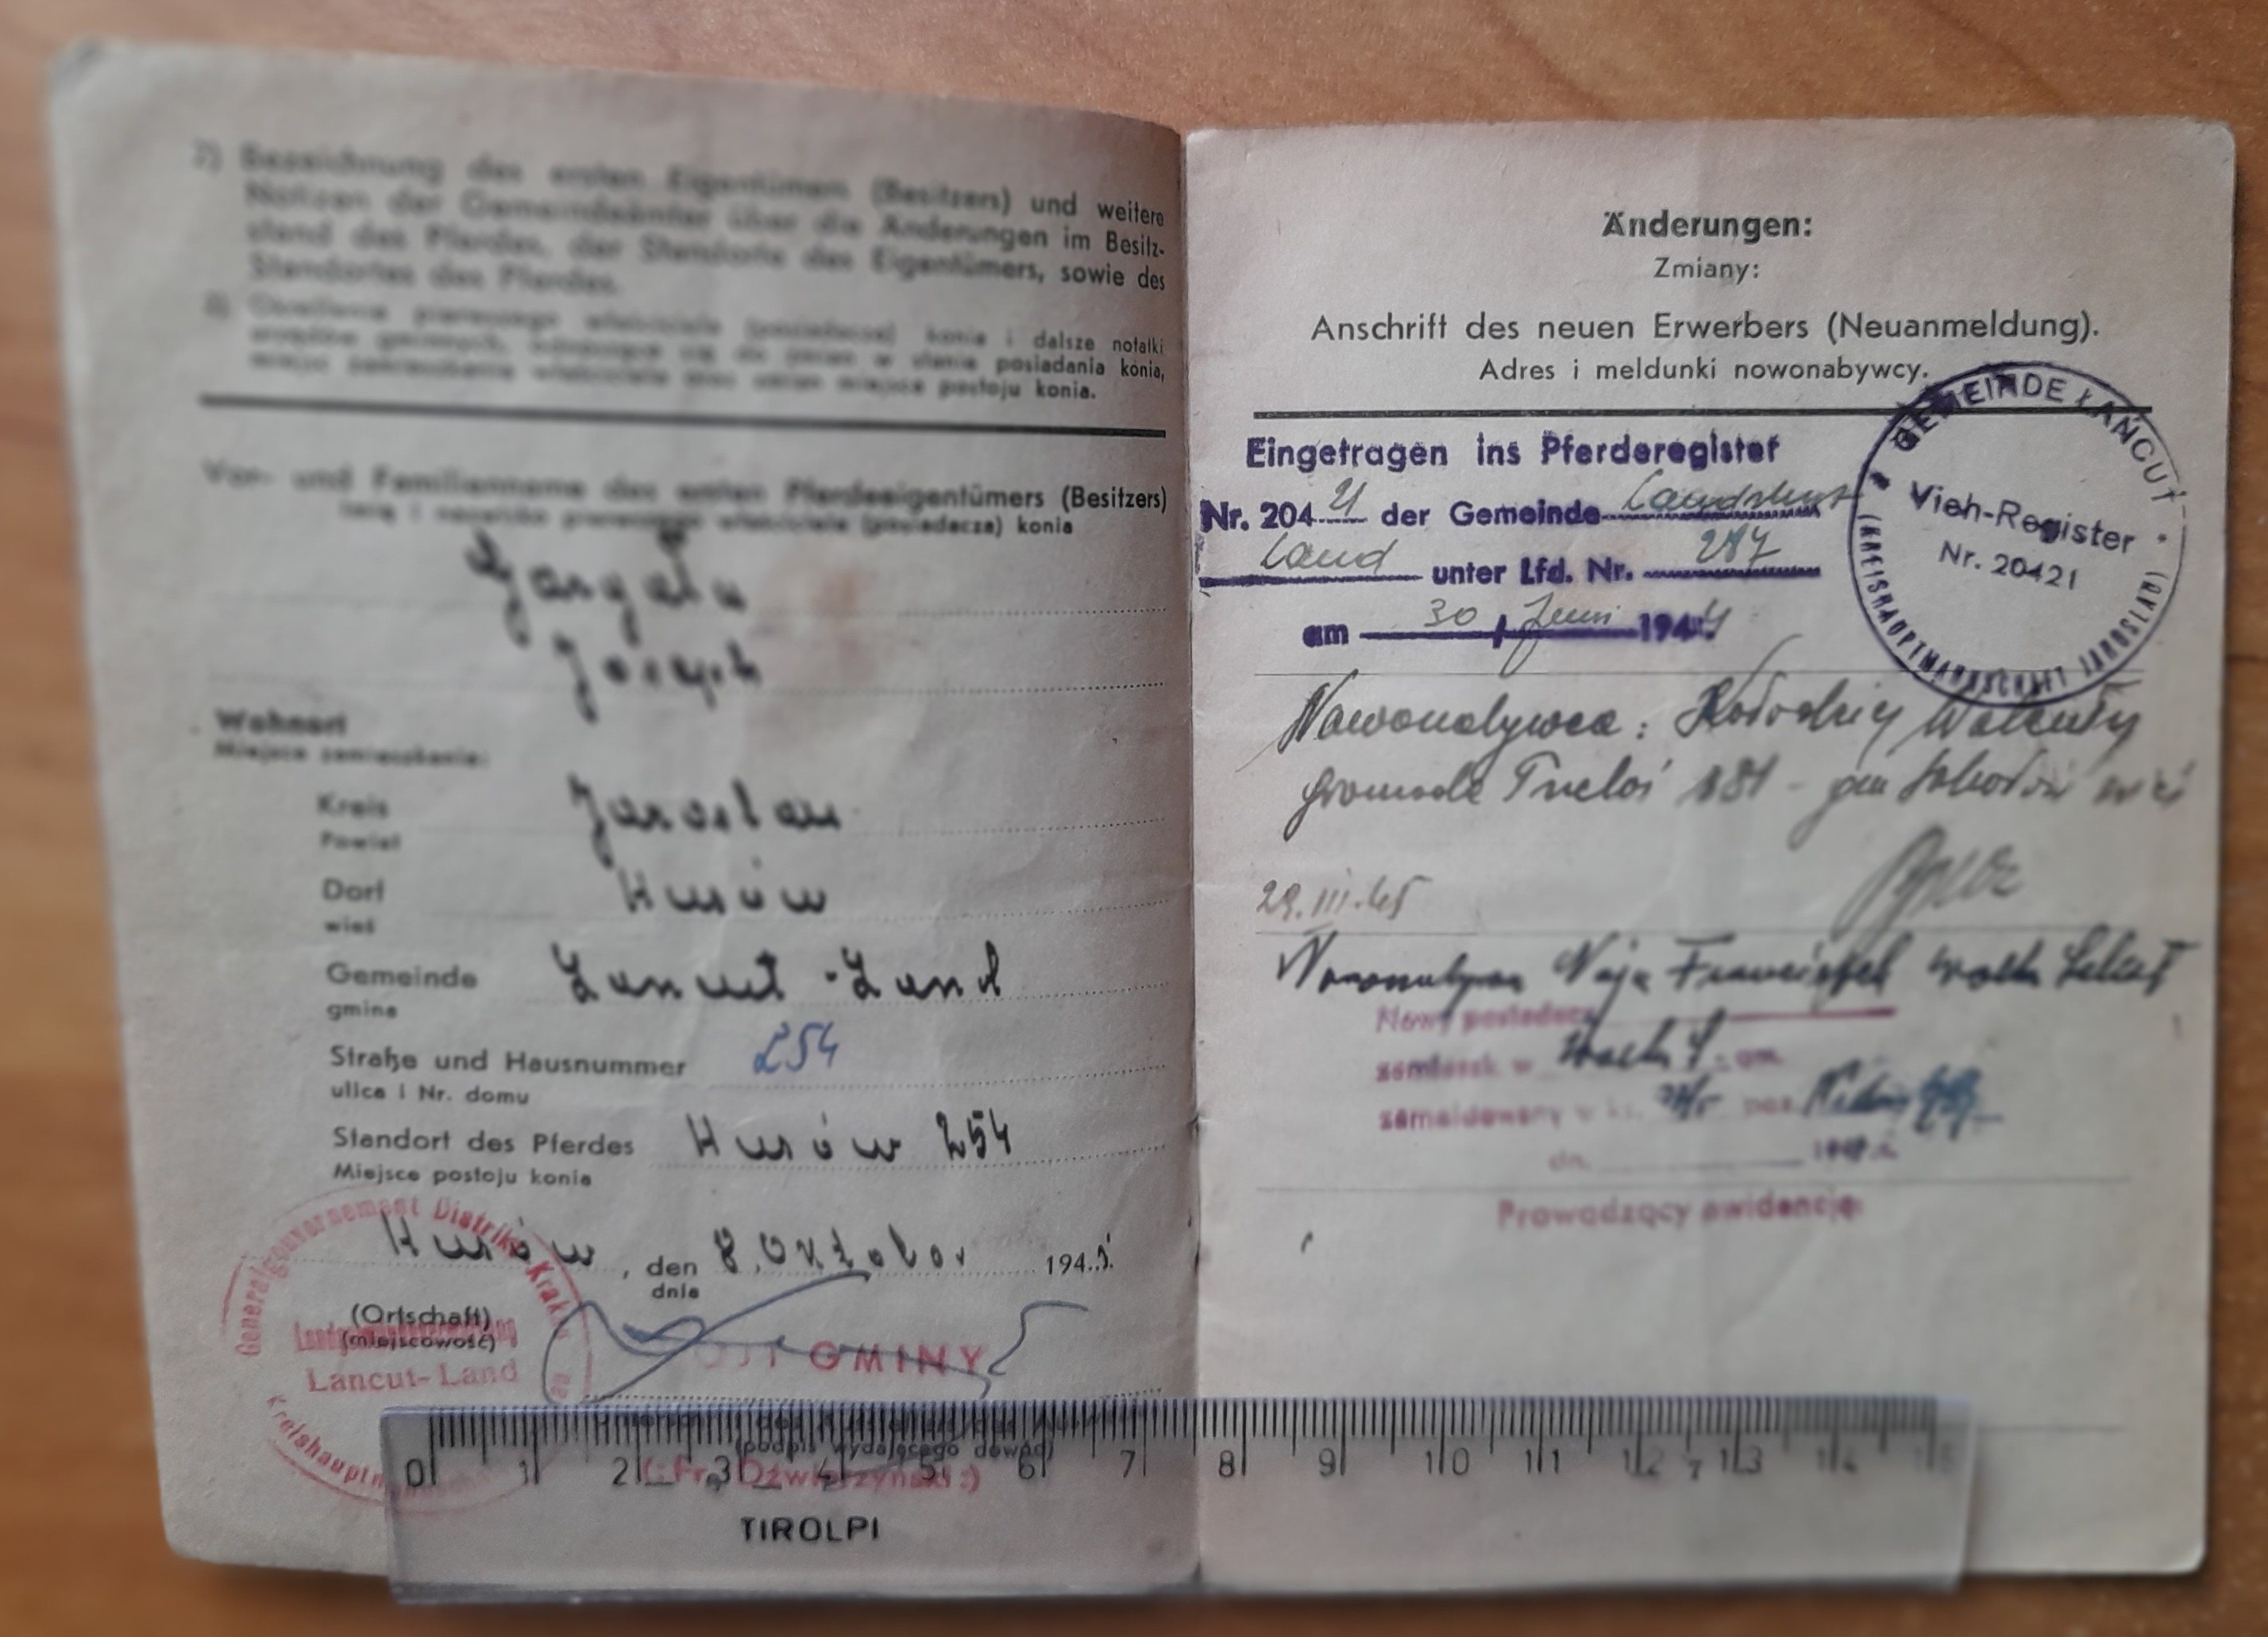 2) Bezeichnung des ersten Eigentümers (Besitzers) und weitere
Notizen der Gemeindeämter über die Änderungen im Besitz-
stand des Pferdes, der Standorte des Eigentümers, sowie des
Standortes des Pferdes.
2) Określenie pierwszego właściciela (posiadacza) konia i dalsze notatki
urzędów gminnych, odnoszące się do zmian w stanie posiadania konia,
miejsc zamieszkania właściciela oraz zmian miejsca postoju konia.
Vor- und Familienname des ersten Pferdeeigentümers (Besitzers)
Imię i nazwisko pierwszego właściciela (posiadacza) konia
Joseph
Wohnort
Miejsce zamieszkania:
Kreis Jaroslau
Powiat
Dorf Husów
wieś
Gemeinde Lancut-Land
gmina
Straße und Hausnummer 254
ulica i Nr. domu
Standort des Pferdes Husów 254
Miejsce postoju konia
Husów, den 8. Oktober 194
dnia
(Ortschaft)
(miejscowość)
Generalgouvernement Distrikt Krakau
Lancut-Land
GMINY
(podpis wydającego dowód)
(:Fr. Dźwierzyński:)
0 1 2 3 4 5 6 7 8 9 10 11 12 13 14 15
TIROLPI
Änderungen:
Zmiany:
Anschrift des neuen Erwerbers (Neuanmeldung).
Adres i meldunki nowonabywcy.
GEMEINDE ŁAŃCUT
(KREISHAUPTMANNSCHAFT JAROSLAU)
Vieh-Register
Nr. 20421
Eingetragen ins Pferderegister
Nr. 204 21 der Gemeinde Landshut
Land unter Lfd. Nr. 287
am 30 / Juni 1944
Nowonabywca: Kołodziej Walenty
gromada 181 - gm
29.III.45
Nowonabywca Franciszek
Nowy posiadacz
zamieszk. w gm.
zameldowany w ks. poz.
dn. 194
Prowadzący ewidencję